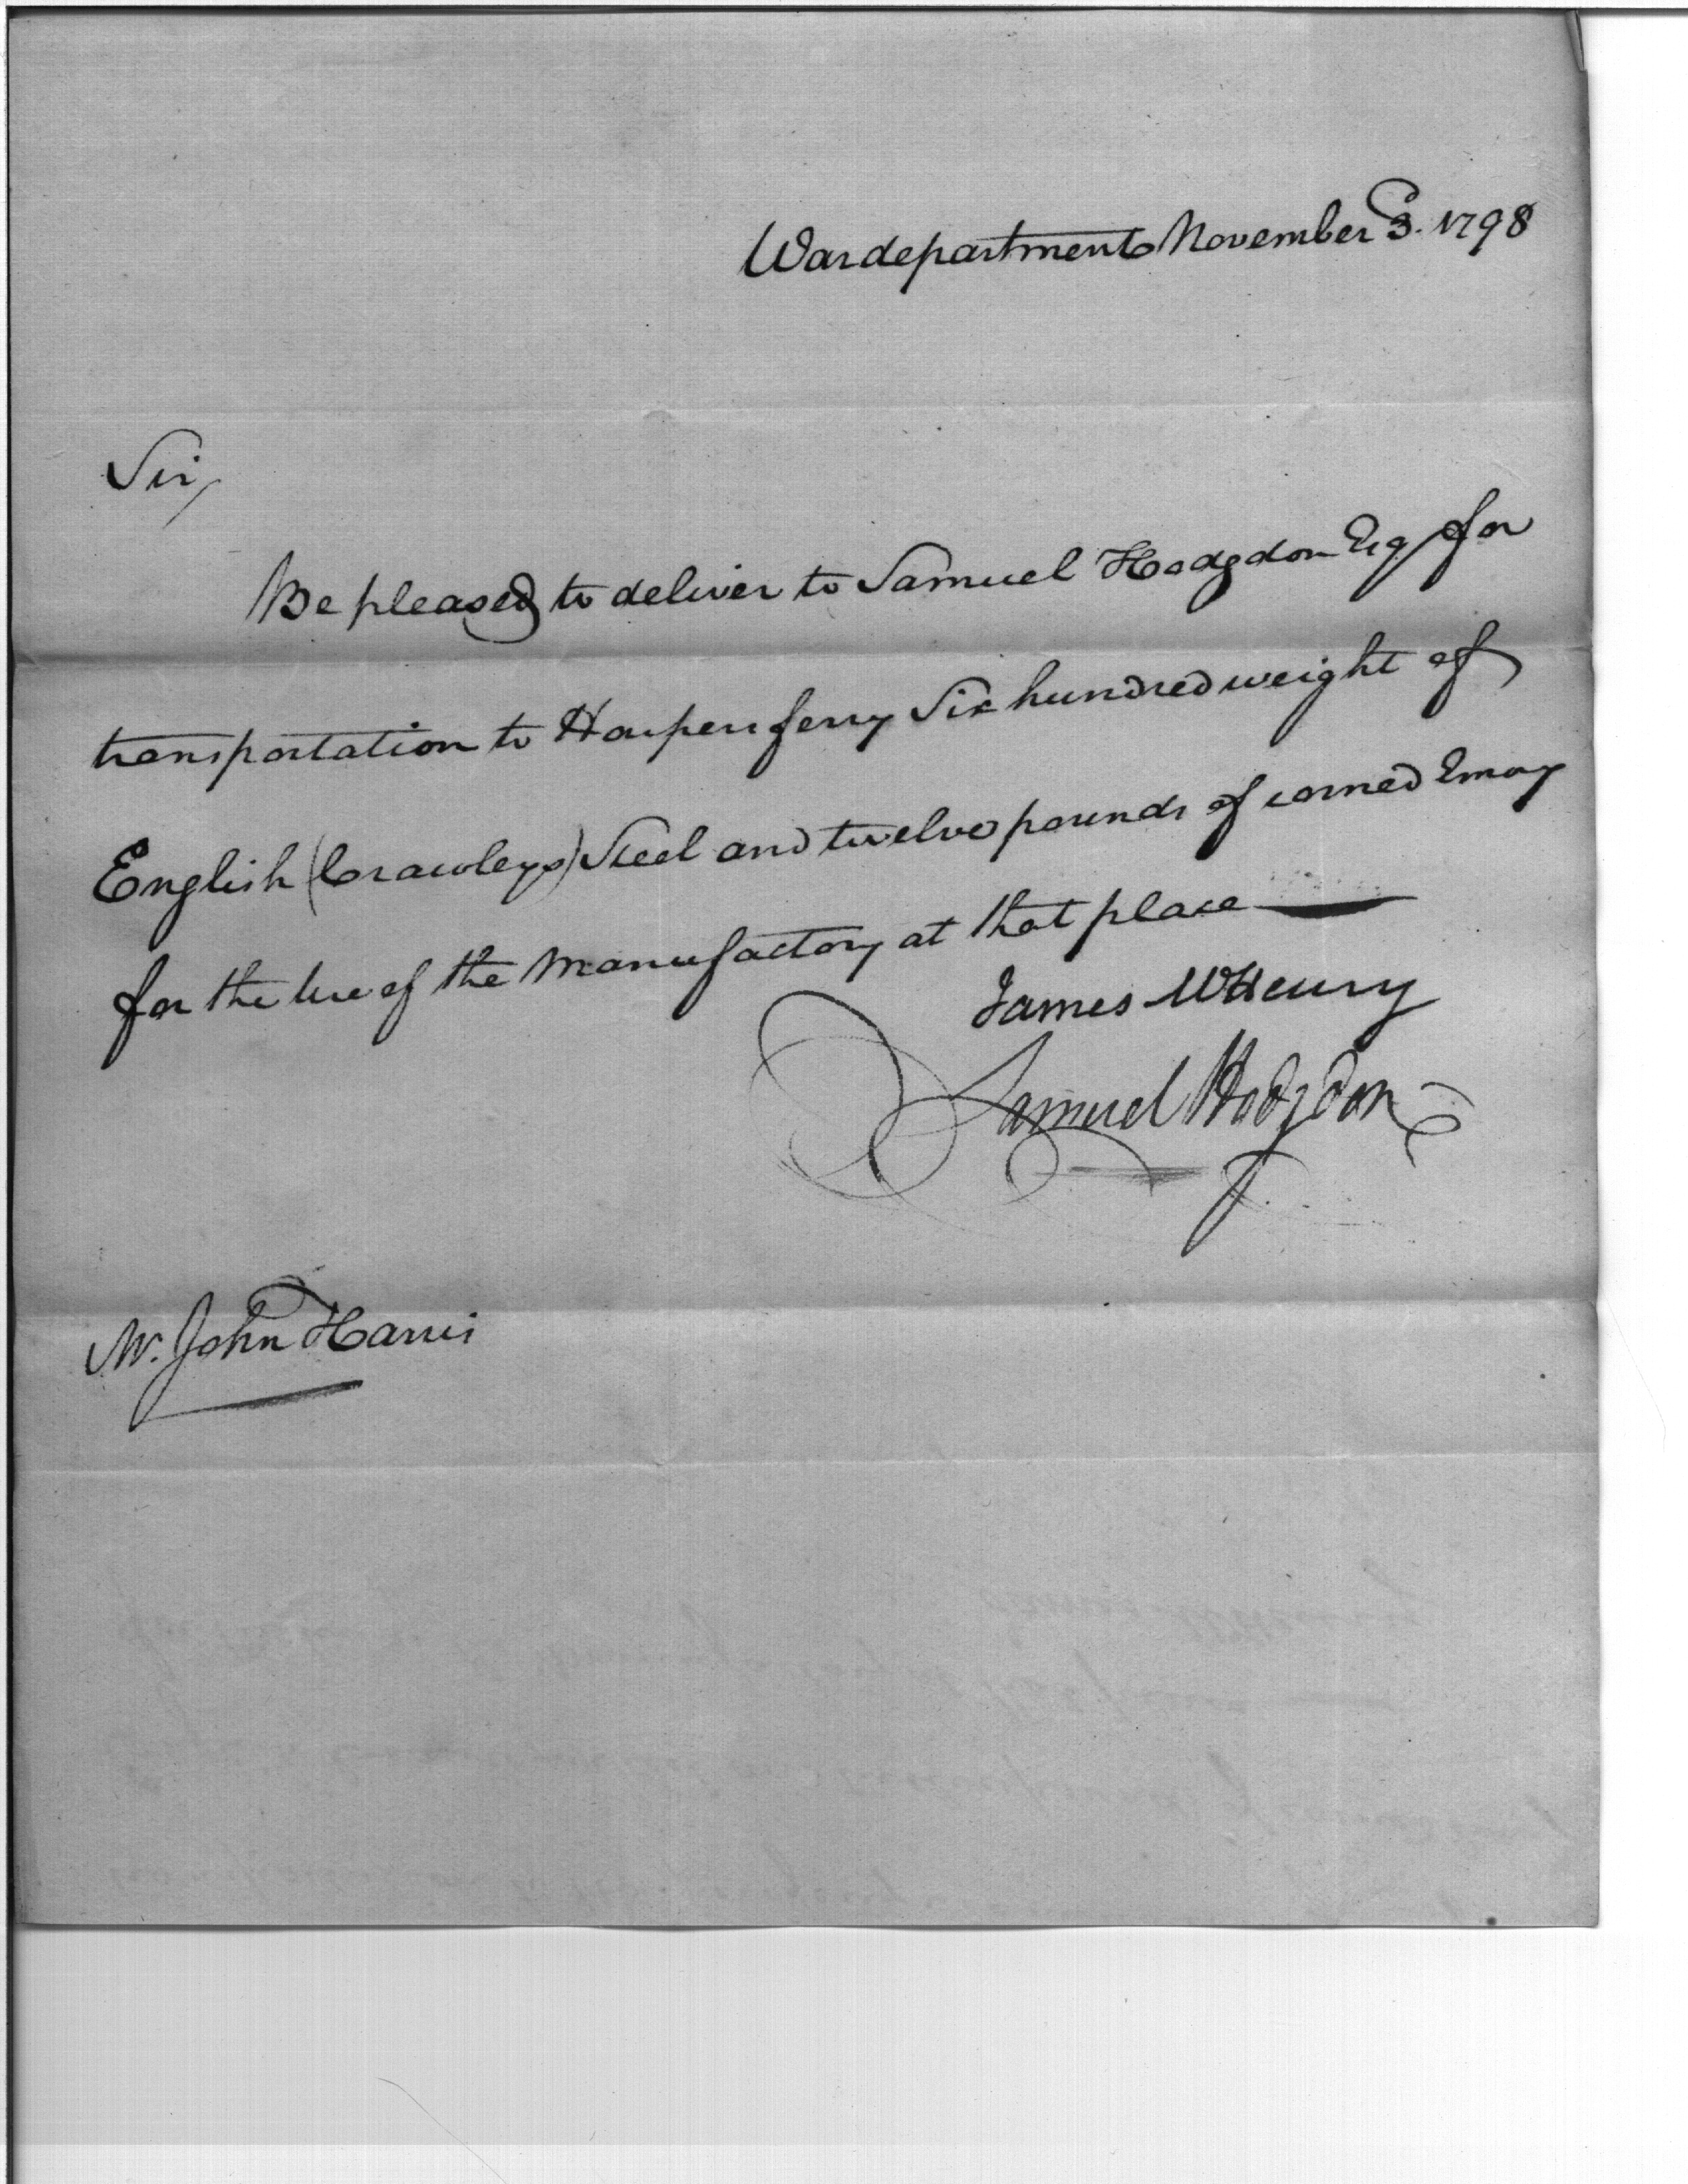 War department November 3. 1798
Sir,
Be pleased to deliver to Samuel Hodgdon Esq for
transportation to Harpers ferry Six hundred weight of
English (Crawleys) Steel and twelve pounds of corned Emory
for the use of the Manufactory at that place
James McHenry
Samuel Hodgdon
Mr. John Harris